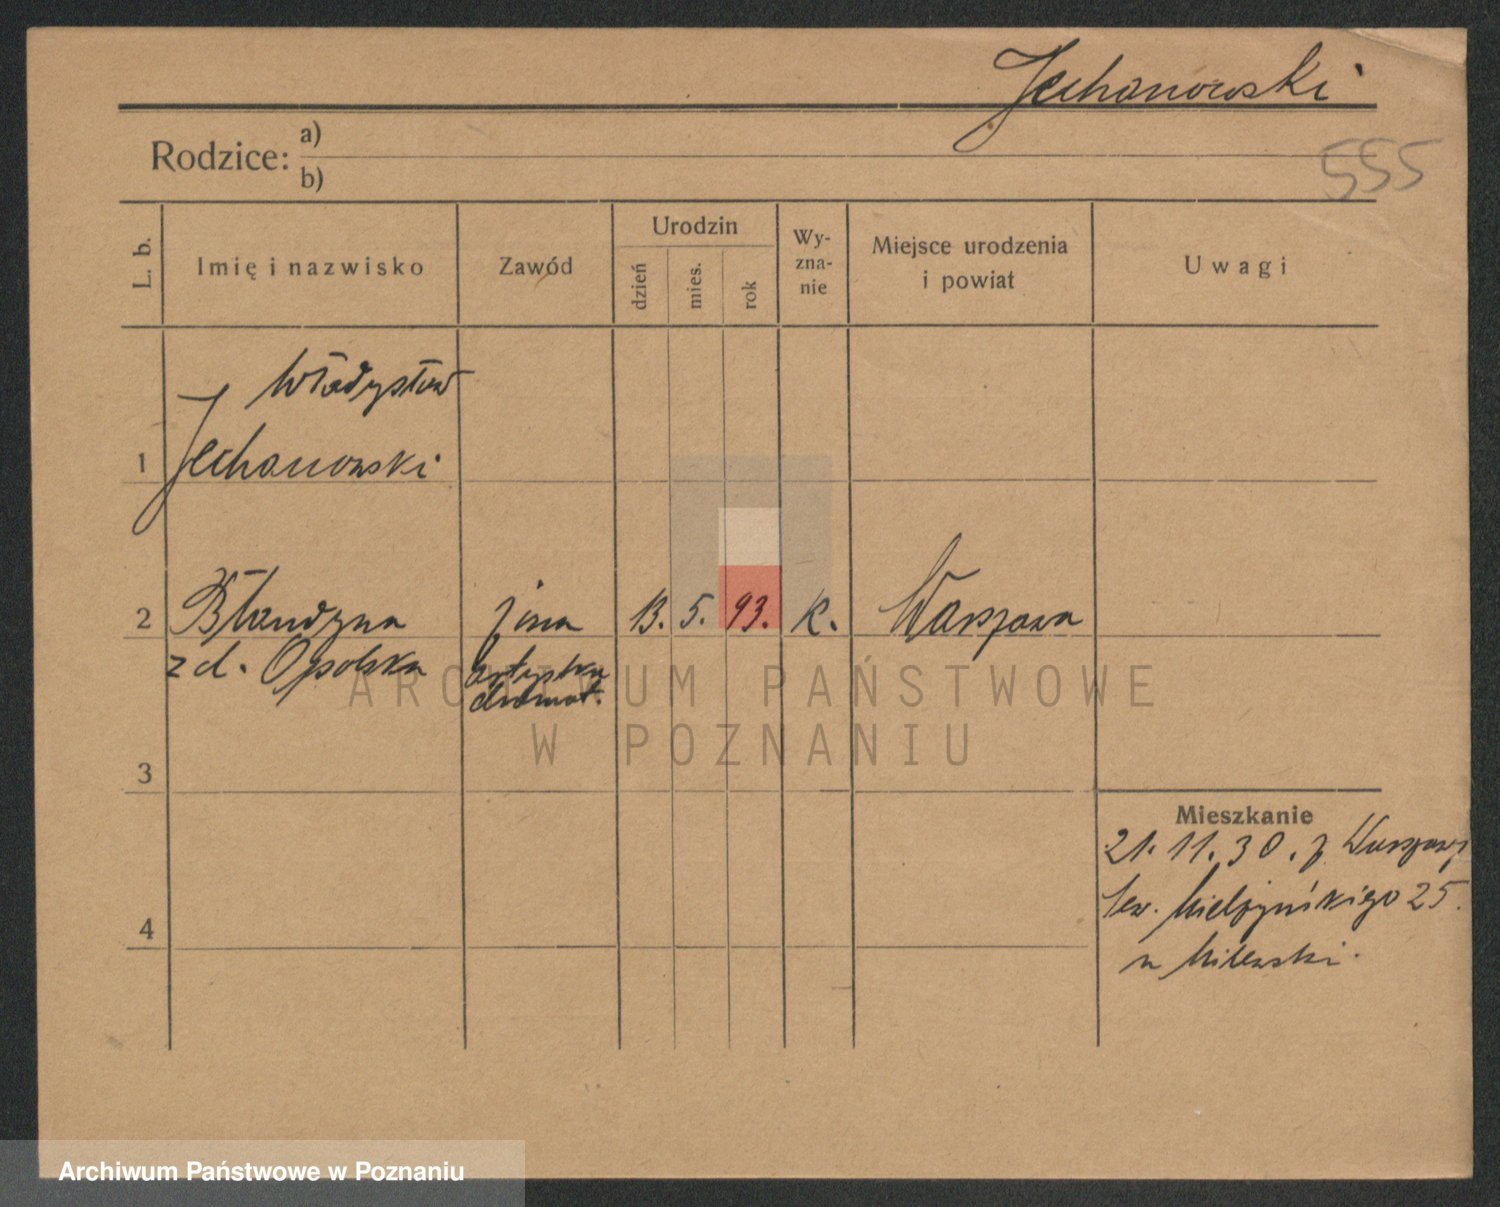 Jechanowski
555
Rodzice: a)
b)
L. b.
Imię i nazwisko
Zawód
Urodzin
dzień
mies.
rok
Wy-
zna-
nie
Miejsce urodzenia
i powiat
Uwagi
1
Władysław
Jechanowski
2
Blandyna
z d. Opolska
żona
artystka
dramat.
13. 5. 93.
K.
Warszawa
3
4
Mieszkanie
21. 11. 30. z Warszawy
Sew. Mielżyńskiego 25.
u Milewski.
ARCHIWUM PAŃSTWOWE
W POZNANIU
Archiwum Państwowe w Poznaniu